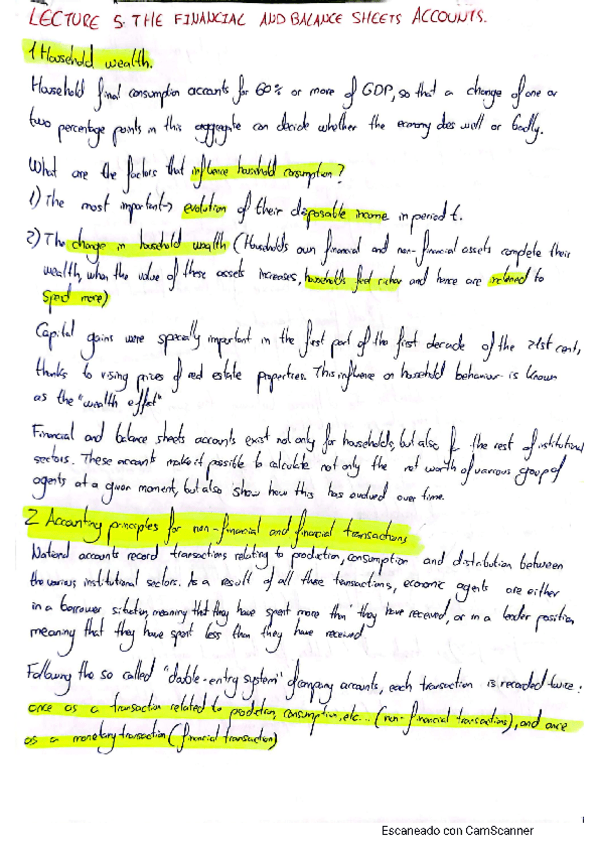 LECTURE 5: THE FINANCIAL AND BALANCE SHEETS ACCOUNTS.
1 Household wealth.
Household final consumption accounts for 60% or more of GDP, so that a change of one or
two percentage points in this aggregate can decide whether the economy does well or badly.
What are the factors that influence household consumption?
1) The most important → evolution of their disposable income in period t.
2) The change in household wealth (Households own financial and non-financial assets complete their
wealth, when the value of these assets increases, households feel richer and hence are inclined to
spend more)
Capital gains were specially important in the first part of the first decade of the 21st cent,
thanks to rising prices of real estate properties. This influence on household behaviour is known
as the "wealth effect"
Financial and balance sheets accounts exist not only for households, but also for the rest of institutional
sectors. These accounts make it possible to calculate not only the net worth of various group of
agents at a given moment, but also show how this has evolved over time.
2 Accounting principles for non-financial and financial transactions
National accounts record transactions relating to production, consumption and distribution between
the various institutional sectors. As a result of all these transactions, economic agents are either
in a borrower situation, meaning that they have spent more than they have received, or in a lender position,
meaning that they have spent less than they have received.
Following the so called "double-entry system" of company accounts, each transaction is recorded twice:
once as a transaction related to production, consumption, etc... (non-financial transactions), and once
as a monetary transaction (financial transaction)
1
Escaneado con CamScanner